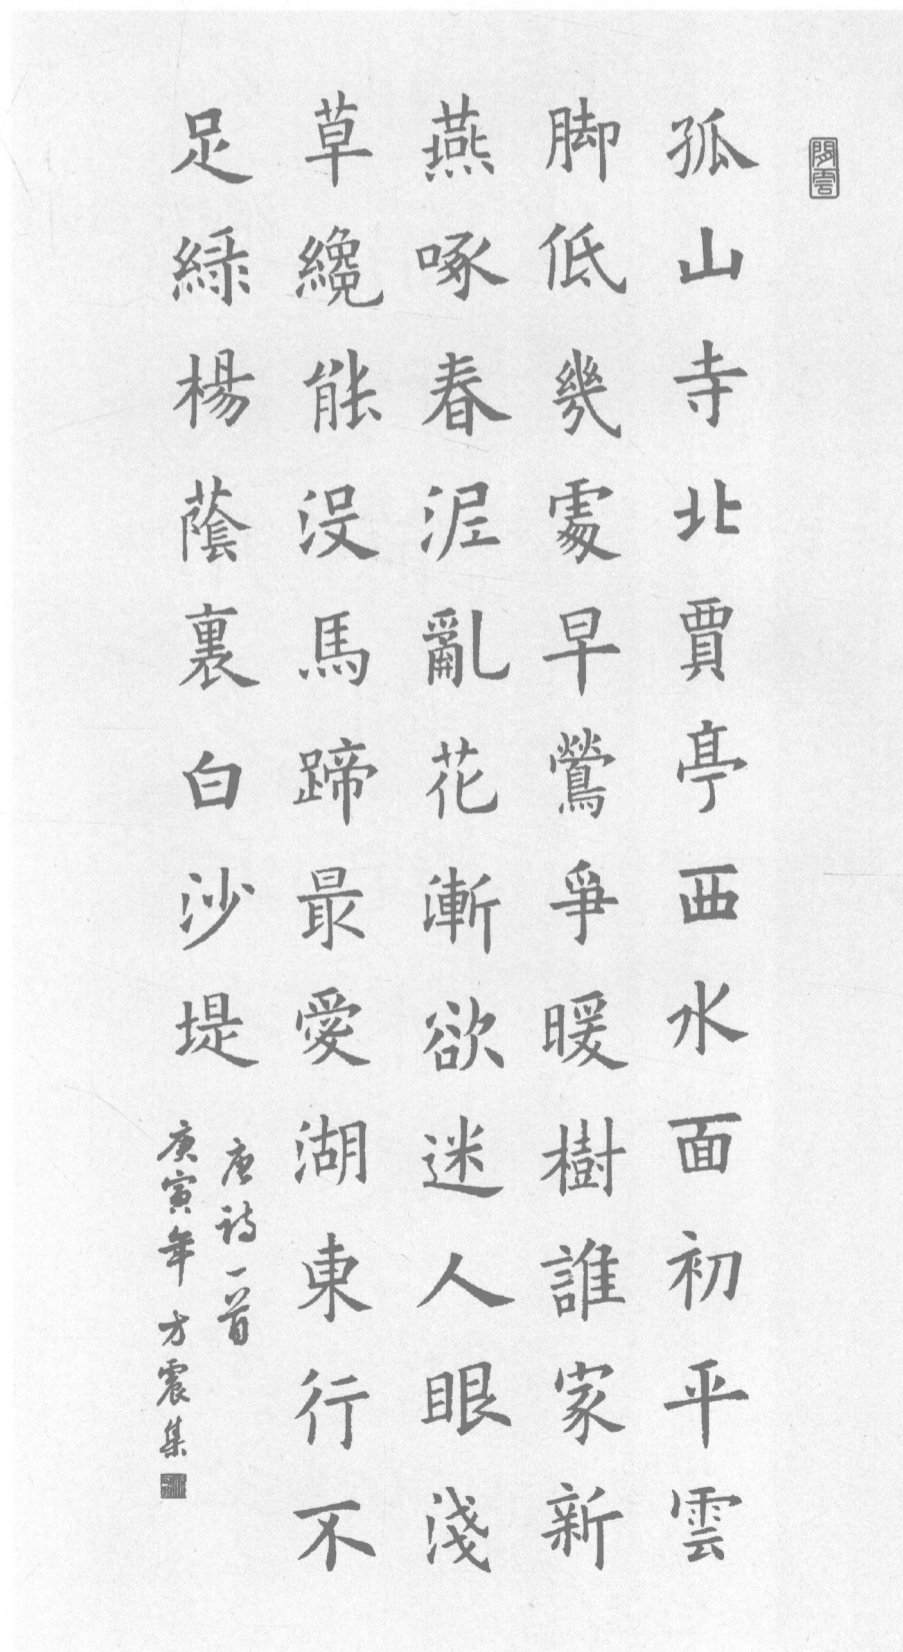 閒雲
孤山寺北賈亭西水面初平雲
脚低幾處早鶯爭暖樹誰家新
燕啄春泥亂花漸欲迷人眼淺
草纔能没馬蹄最愛湖東行不
足緑楊蔭裏白沙堤
唐詩一首
庚寅年方震集